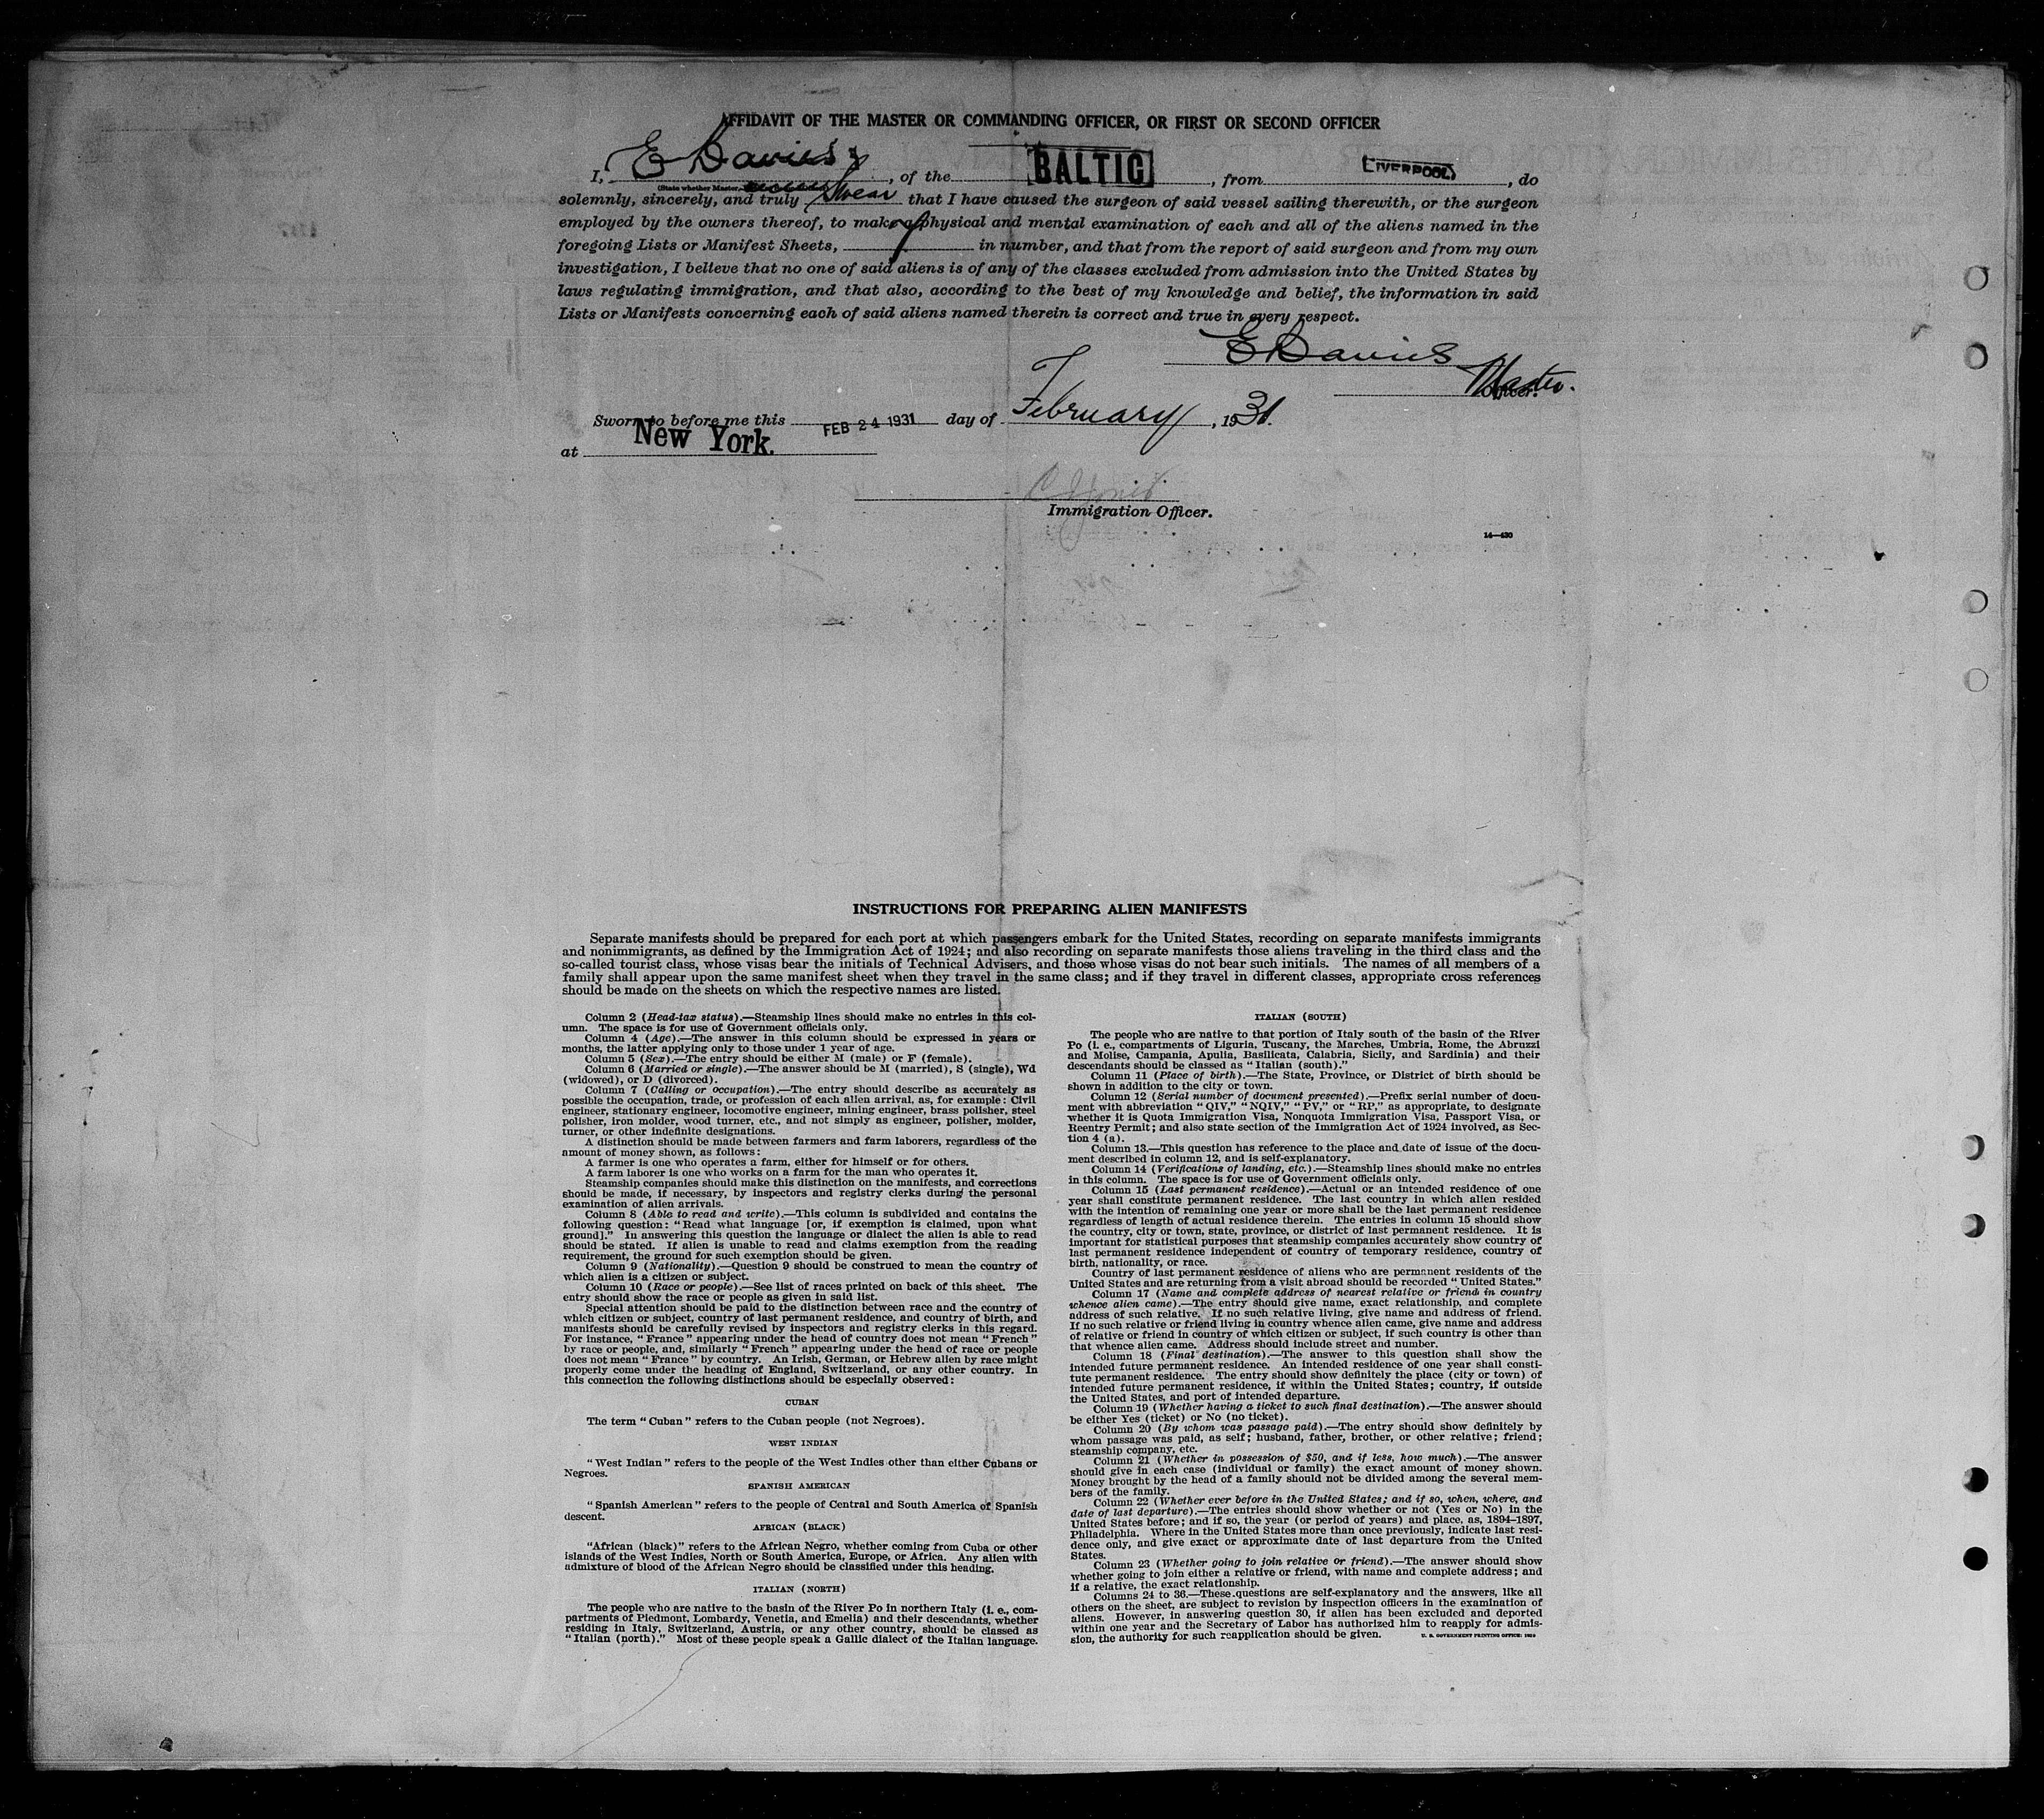 AFFIDAVIT OF THE MASTER OR COMMANDING OFFICER, OR FIRST OR SECOND OFFICER
I, E Davies, of the BALTIC, from LIVERPOOL, do
(State whether Master,
solemnly, sincerely, and truly swear that I have caused the surgeon of said vessel sailing therewith, or the surgeon
employed by the owners thereof, to make a physical and mental examination of each and all of the aliens named in the
foregoing Lists or Manifest Sheets, in number, and that from the report of said surgeon and from my own
investigation, I believe that no one of said aliens is of any of the classes excluded from admission into the United States by
laws regulating immigration, and that also, according to the best of my knowledge and belief, the information in said
Lists or Manifests concerning each of said aliens named therein is correct and true in every respect.
E Davies
Master.
Officer.
Sworn to before me this FEB 24 1931 day of February, 1931.
at New York.
Immigration Officer.
14—430
INSTRUCTIONS FOR PREPARING ALIEN MANIFESTS
Separate manifests should be prepared for each port at which passengers embark for the United States, recording on separate manifests immigrants
and nonimmigrants, as defined by the Immigration Act of 1924; and also recording on separate manifests those aliens traveling in the third class and the
so-called tourist class, whose visas bear the initials of Technical Advisers, and those whose visas do not bear such initials. The names of all members of a
family shall appear upon the same manifest sheet when they travel in the same class; and if they travel in different classes, appropriate cross references
should be made on the sheets on which the respective names are listed.
Column 2 (Head-tax status).—Steamship lines should make no entries in this col-
umn. The space is for use of Government officials only.
Column 4 (Age).—The answer in this column should be expressed in years or
months, the latter applying only to those under 1 year of age.
Column 5 (Sex).—The entry should be either M (male) or F (female).
Column 6 (Married or single).—The answer should be M (married), S (single), Wd
(widowed), or D (divorced).
Column 7 (Calling or occupation).—The entry should describe as accurately as
possible the occupation, trade, or profession of each alien arrival, as, for example: Civil
engineer, stationary engineer, locomotive engineer, mining engineer, brass polisher, steel
polisher, iron molder, wood turner, etc., and not simply as engineer, polisher, molder,
turner, or other indefinite designations.
A distinction should be made between farmers and farm laborers, regardless of the
amount of money shown, as follows:
A farmer is one who operates a farm, either for himself or for others.
A farm laborer is one who works on a farm for the man who operates it.
Steamship companies should make this distinction on the manifests, and corrections
should be made, if necessary, by inspectors and registry clerks during the personal
examination of alien arrivals.
Column 8 (Able to read and write).—This column is subdivided and contains the
following question: "Read what language [or, if exemption is claimed, upon what
ground]." In answering this question the language or dialect the alien is able to read
should be stated. If alien is unable to read and claims exemption from the reading
requirement, the ground for such exemption should be given.
Column 9 (Nationality).—Question 9 should be construed to mean the country of
which alien is a citizen or subject.
Column 10 (Race or people).—See list of races printed on back of this sheet. The
entry should show the race or people as given in said list.
Special attention should be paid to the distinction between race and the country of
which citizen or subject, country of last permanent residence, and country of birth, and
manifests should be carefully revised by inspectors and registry clerks in this regard.
For instance, "France" appearing under the head of country does not mean "French"
by race or people, and, similarly "French" appearing under the head of race or people
does not mean "France" by country. An Irish, German, or Hebrew alien by race might
properly come under the heading of England, Switzerland, or any other country. In
this connection the following distinctions should be especially observed:
CUBAN
The term "Cuban" refers to the Cuban people (not Negroes).
WEST INDIAN
"West Indian" refers to the people of the West Indies other than either Cubans or
Negroes.
SPANISH AMERICAN
"Spanish American" refers to the people of Central and South America of Spanish
descent.
AFRICAN (BLACK)
"African (black)" refers to the African Negro, whether coming from Cuba or other
islands of the West Indies, North or South America, Europe, or Africa. Any alien with
admixture of blood of the African Negro should be classified under this heading.
ITALIAN (NORTH)
The people who are native to the basin of the River Po in northern Italy (i. e., com-
partments of Piedmont, Lombardy, Venetia, and Emelia) and their descendants, whether
residing in Italy, Switzerland, Austria, or any other country, should be classed as
"Italian (north)." Most of these people speak a Gallic dialect of the Italian language.
ITALIAN (SOUTH)
The people who are native to that portion of Italy south of the basin of the River
Po (i. e., compartments of Liguria, Tuscany, the Marches, Umbria, Rome, the Abruzzi
and Molise, Campania, Apulia, Basilicata, Calabria, Sicily, and Sardinia) and their
descendants should be classed as "Italian (south)."
Column 11 (Place of birth).—The State, Province, or District of birth should be
shown in addition to the city or town.
Column 12 (Serial number of document presented).—Prefix serial number of docu-
ment with abbreviation "QIV," "NQIV," "PV," or "RP," as appropriate, to designate
whether it is Quota Immigration Visa, Nonquota Immigration Visa, Passport Visa, or
Reentry Permit; and also state section of the Immigration Act of 1924 involved, as Sec-
tion 4 (a).
Column 13.—This question has reference to the place and date of issue of the docu-
ment described in column 12, and is self-explanatory.
Column 14 (Verifications of landing, etc.).—Steamship lines should make no entries
in this column. The space is for use of Government officials only.
Column 15 (Last permanent residence).—Actual or an intended residence of one
year shall constitute permanent residence. The last country in which alien resided
with the intention of remaining one year or more shall be the last permanent residence
regardless of length of actual residence therein. The entries in column 15 should show
the country, city or town, state, province, or district of last permanent residence. It is
important for statistical purposes that steamship companies accurately show country of
last permanent residence independent of country of temporary residence, country of
birth, nationality, or race.
Country of last permanent residence of aliens who are permanent residents of the
United States and are returning from a visit abroad should be recorded "United States."
Column 17 (Name and complete address of nearest relative or friend in country
whence alien came).—The entry should give name, exact relationship, and complete
address of such relative. If no such relative living, give name and address of friend.
If no such relative or friend living in country whence alien came, give name and address
of relative or friend in country of which citizen or subject, if such country is other than
that whence alien came. Address should include street and number.
Column 18 (Final destination).—The answer to this question shall show the
intended future permanent residence. An intended residence of one year shall consti-
tute permanent residence. The entry should show definitely the place (city or town) of
intended future permanent residence, if within the United States; country, if outside
the United States, and port of intended departure.
Column 19 (Whether having a ticket to such final destination).—The answer should
be either Yes (ticket) or No (no ticket).
Column 20 (By whom was passage paid).—The entry should show definitely by
whom passage was paid, as self; husband, father, brother, or other relative; friend;
steamship company, etc.
Column 21 (Whether in possession of $50, and if less, how much).—The answer
should give in each case (individual or family) the exact amount of money shown.
Money brought by the head of a family should not be divided among the several mem-
bers of the family.
Column 22 (Whether ever before in the United States; and if so, when, where, and
date of last departure).—The entries should show whether or not (Yes or No) in the
United States before; and if so, the year (or period of years) and place, as, 1894–1897,
Philadelphia. Where in the United States more than once previously, indicate last resi-
dence only, and give exact or approximate date of last departure from the United
States.
Column 23 (Whether going to join relative or friend).—The answer should show
whether going to join either a relative or friend, with name and complete address; and
if a relative, the exact relationship.
Columns 24 to 36.—These questions are self-explanatory and the answers, like all
others on the sheet, are subject to revision by inspection officers in the examination of
aliens. However, in answering question 30, if alien has been excluded and deported
within one year and the Secretary of Labor has authorized him to reapply for admis-
sion, the authority for such reapplication should be given.
U. S. GOVERNMENT PRINTING OFFICE: